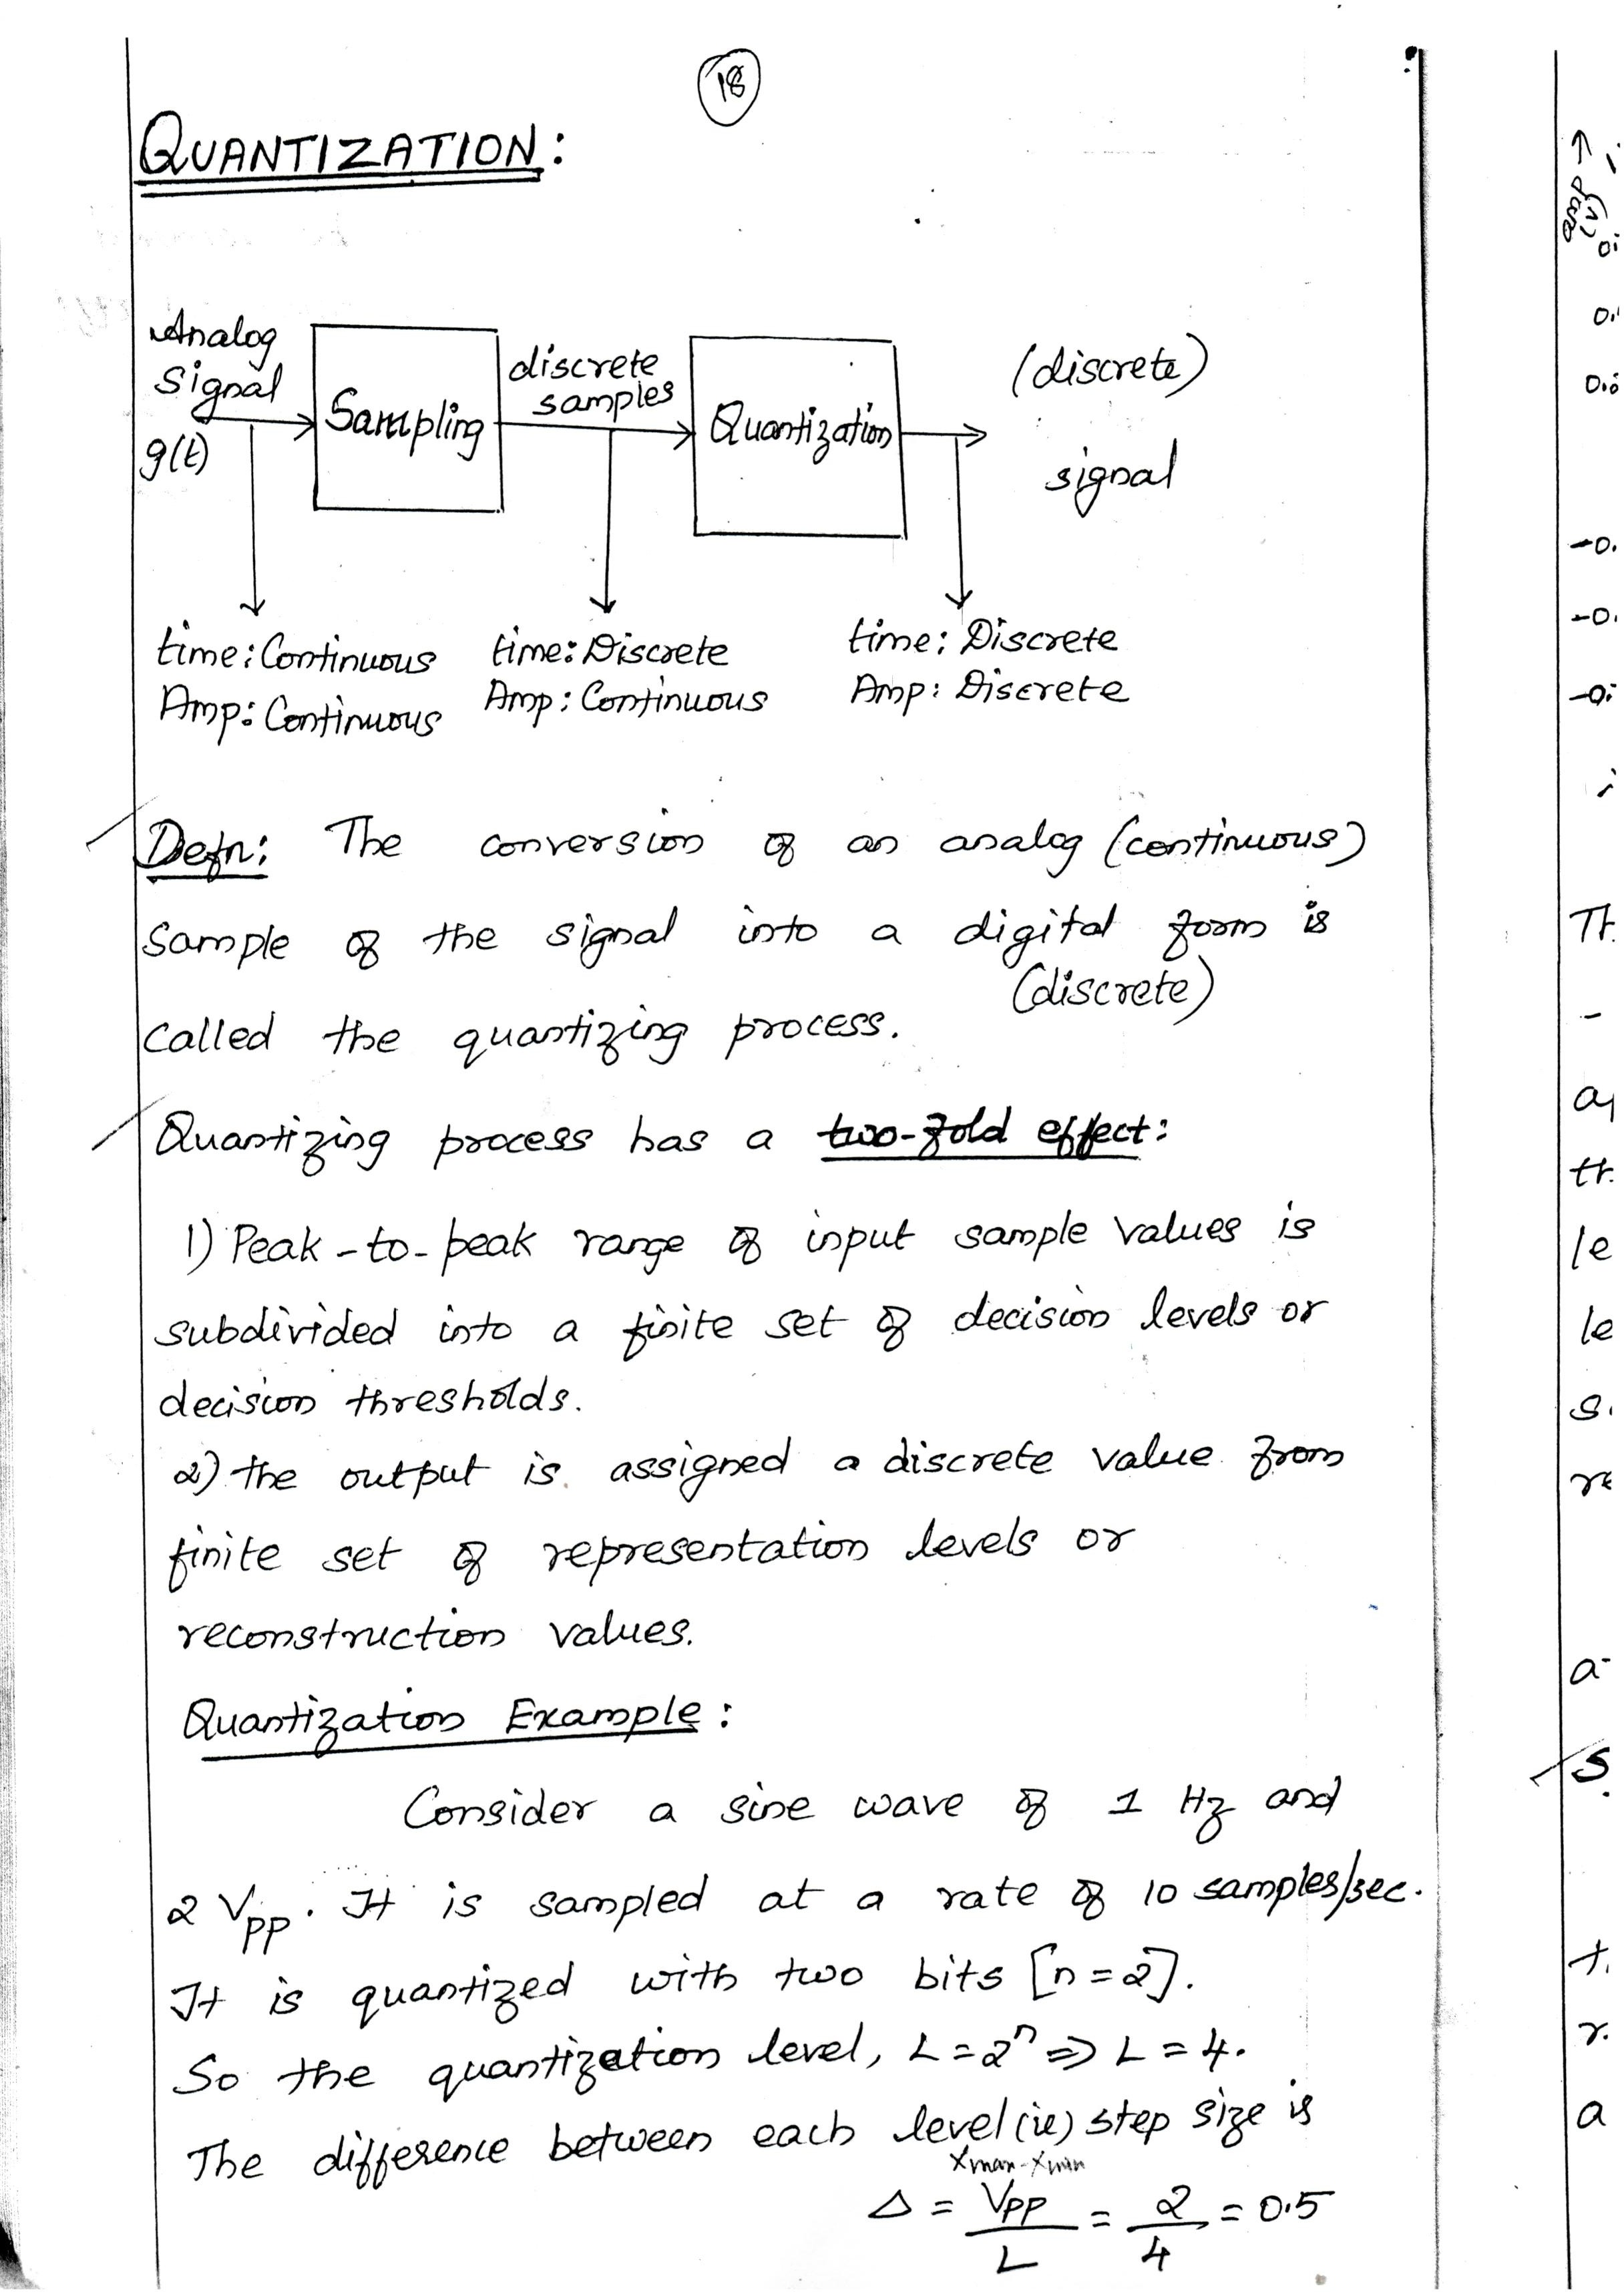 18
QUANTIZATION:
Analog
Signal
g(t)
Sampling
discrete
samples
Quantization
(discrete)
signal
time: Continuous
Amp: Continuous
time: Discrete
Amp: Continuous
time: Discrete
Amp: Discrete
Defn: The conversion of an analog (continuous)
sample of the signal into a digital form is
(discrete)
called the quantizing process.
Quantizing process has a two-fold effect:
1) Peak-to-peak range of input sample values is
subdivided into a finite set of decision levels or
decision thresholds.
2) the output is assigned a discrete value from
finite set of representation levels or
reconstruction values.
Quantization Example:
Consider a sine wave of 1 Hz and
2 Vpp. It is sampled at a rate of 10 samples/sec.
It is quantized with two bits [n=2].
So the quantization level, L=2ⁿ => L=4.
The difference between each level (ie) step size is
Xmax-Xmin
Δ = Vpp/L = 2/4 = 0.5